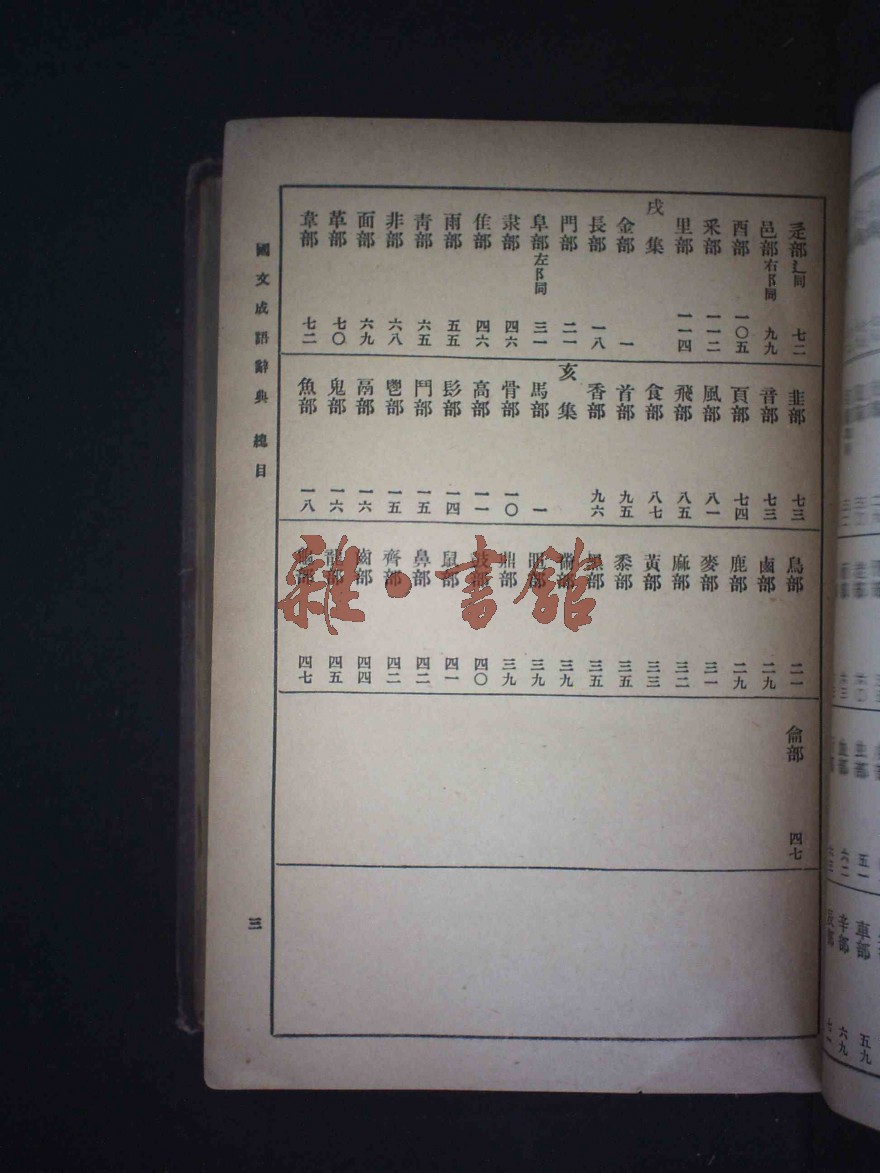 辵部辶同 七二
邑部右阝同 九九
酉部 一〇五
釆部 一一二
里部 一一四
戌集
金部 一
長部 一八
門部 二一
阜部左阝同 三一
隶部 四六
隹部 四六
雨部 五五
青部 六五
非部 六八
面部 六九
革部 七〇
韋部 七二
韭部 七三
音部 七三
頁部 七四
風部 八一
飛部 八五
食部 八七
首部 九五
香部 九六
亥集
馬部 一
骨部 一〇
高部 一一
髟部 一四
鬥部 一五
鬯部 一五
鬲部 一六
鬼部 一六
魚部 一八
鳥部 二一
鹵部 二九
鹿部 二九
麥部 三一
麻部 三二
黃部 三三
黍部 三五
黑部 三五
黹部 三九
黽部 三九
鼎部 三九
鼓部 四〇
鼠部 四一
鼻部 四二
齊部 四二
齒部 四四
龍部 四五
龜部 四七
龠部 四七
國文成語辭典 總目
三
雜·書館
車部 五九
辛部 六九
辰部 七一